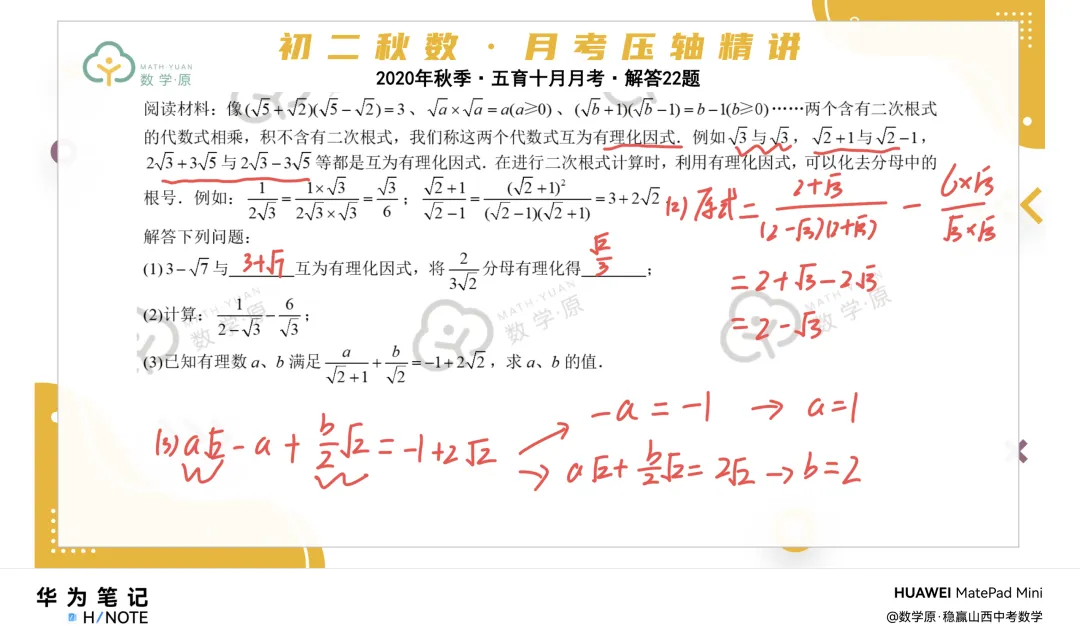 初二秋数·月考压轴精讲
MATH·YUAN
数学·原
2020年秋季·五育十月月考·解答22题
阅读材料：像(√5+√2)(√5−√2)=3、√a×√a=a(a≥0)、(√b+1)(√b−1)=b−1(b≥0)……两个含有二次根式
的代数式相乘，积不含有二次根式，我们称这两个代数式互为有理化因式．例如√3与√3，√2+1与√2−1，
2√3+3√5与2√3−3√5等都是互为有理化因式．在进行二次根式计算时，利用有理化因式，可以化去分母中的
根号．例如：1/(2√3)=(1×√3)/(2√3×√3)=√3/6；(√2+1)/(√2−1)=(√2+1)²/((√2−1)(√2+1))=3+2√2
解答下列问题：
(1)3−√7与 3+√7 互为有理化因式，将2/(3√2)分母有理化得 √2/3 ；
(2)计算：1/(2−√3)−6/√3；
(3)已知有理数a、b满足a/(√2+1)+b/√2=−1+2√2，求a、b的值．
(2)原式=(2+√3)/((2−√3)(2+√3))−(6×√3)/(√3×√3)
=2+√3−2√3
=2−√3
(3)a√2−a+b/2√2=−1+2√2
−a=−1→a=1
→a√2+b/2√2=2√2→b=2
MATH·YUAN
数学·原
MATH·YUAN
数学·原
MATH·YUAN
数学·原
华为笔记
H/NOTE
HUAWEI MatePad Mini
@数学原·稳赢山西中考数学